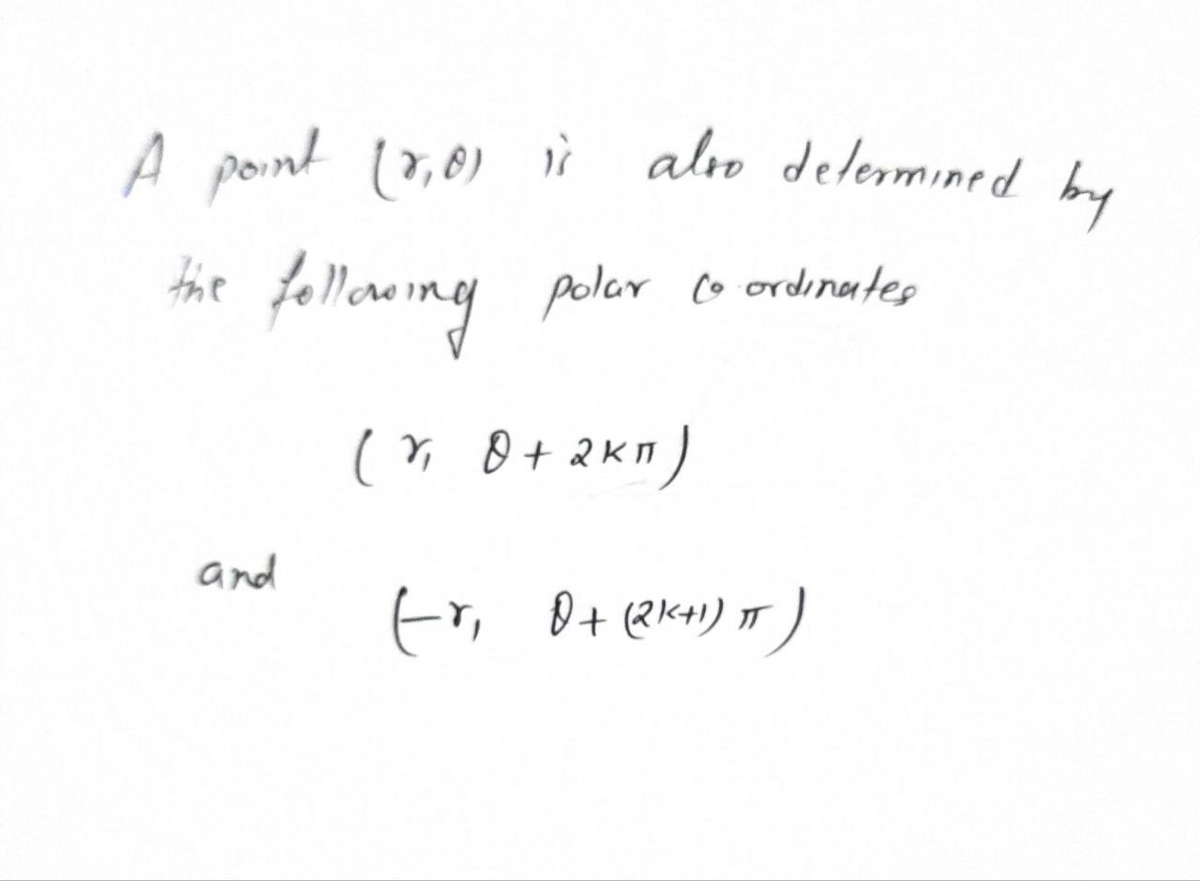 A point (r, θ) is also determined by
the following polar co-ordinates
(r, θ + 2kπ)
and
(-r, θ + (2k+1) π)